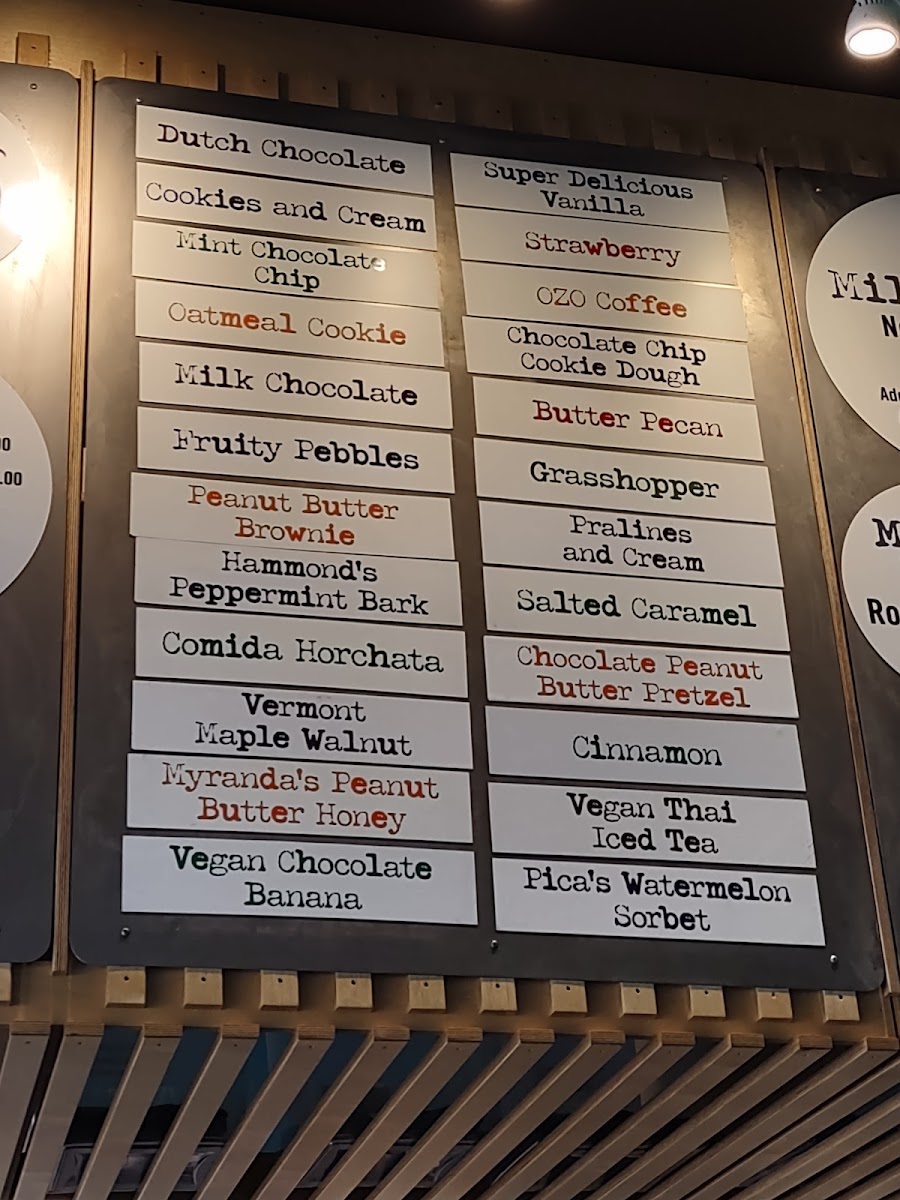 Dutch Chocolate
Cookies and Cream
Mint Chocolate
Chip
Oatmeal Cookie
Milk Chocolate
Fruity Pebbles
Peanut Butter
Brownie
Hammond's
Peppermint Bark
Comida Horchata
Vermont
Maple Walnut
Myranda's Peanut
Butter Honey
Vegan Chocolate
Banana
Super Delicious
Vanilla
Strawberry
OZO Coffee
Chocolate Chip
Cookie Dough
Butter Pecan
Grasshopper
Pralines
and Cream
Salted Caramel
Chocolate Peanut
Butter Pretzel
Cinnamon
Vegan Thai
Iced Tea
Pica's Watermelon
Sorbet